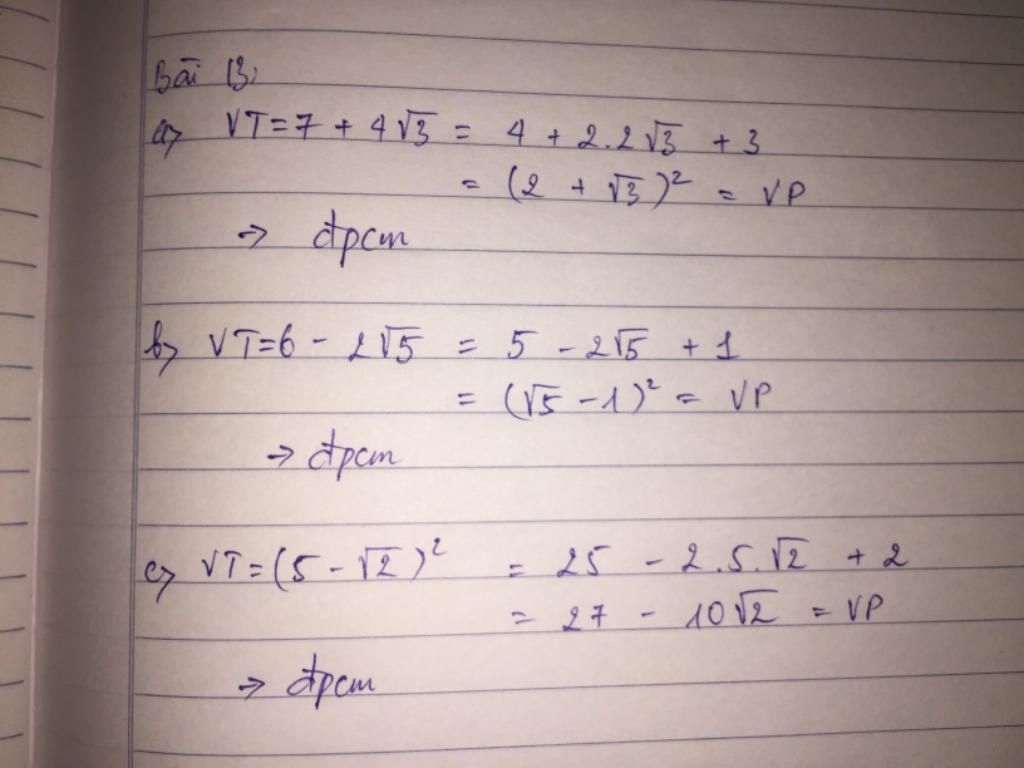 Bài 13:
a> VT = 7 + 4√3 = 4 + 2.2√3 + 3
= (2 + √3)² = VP
→ đpcm
b> VT = 6 - 2√5 = 5 - 2√5 + 1
= (√5 - 1)² = VP
→ đpcm
c> VT = (5 - √2)² = 25 - 2.5.√2 + 2
= 27 - 10√2 = VP
→ đpcm